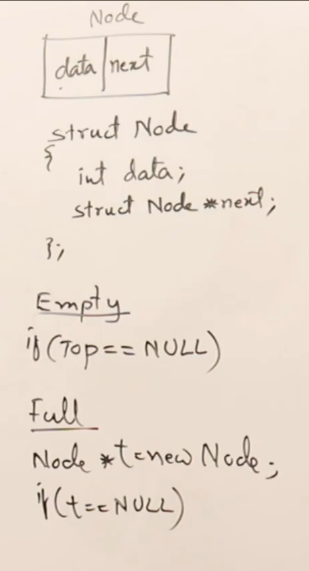 Node
data next
struct Node
{
int data;
struct Node *next;
};
Empty
if (Top == NULL)
Full
Node *t=new Node;
if (t==NULL)